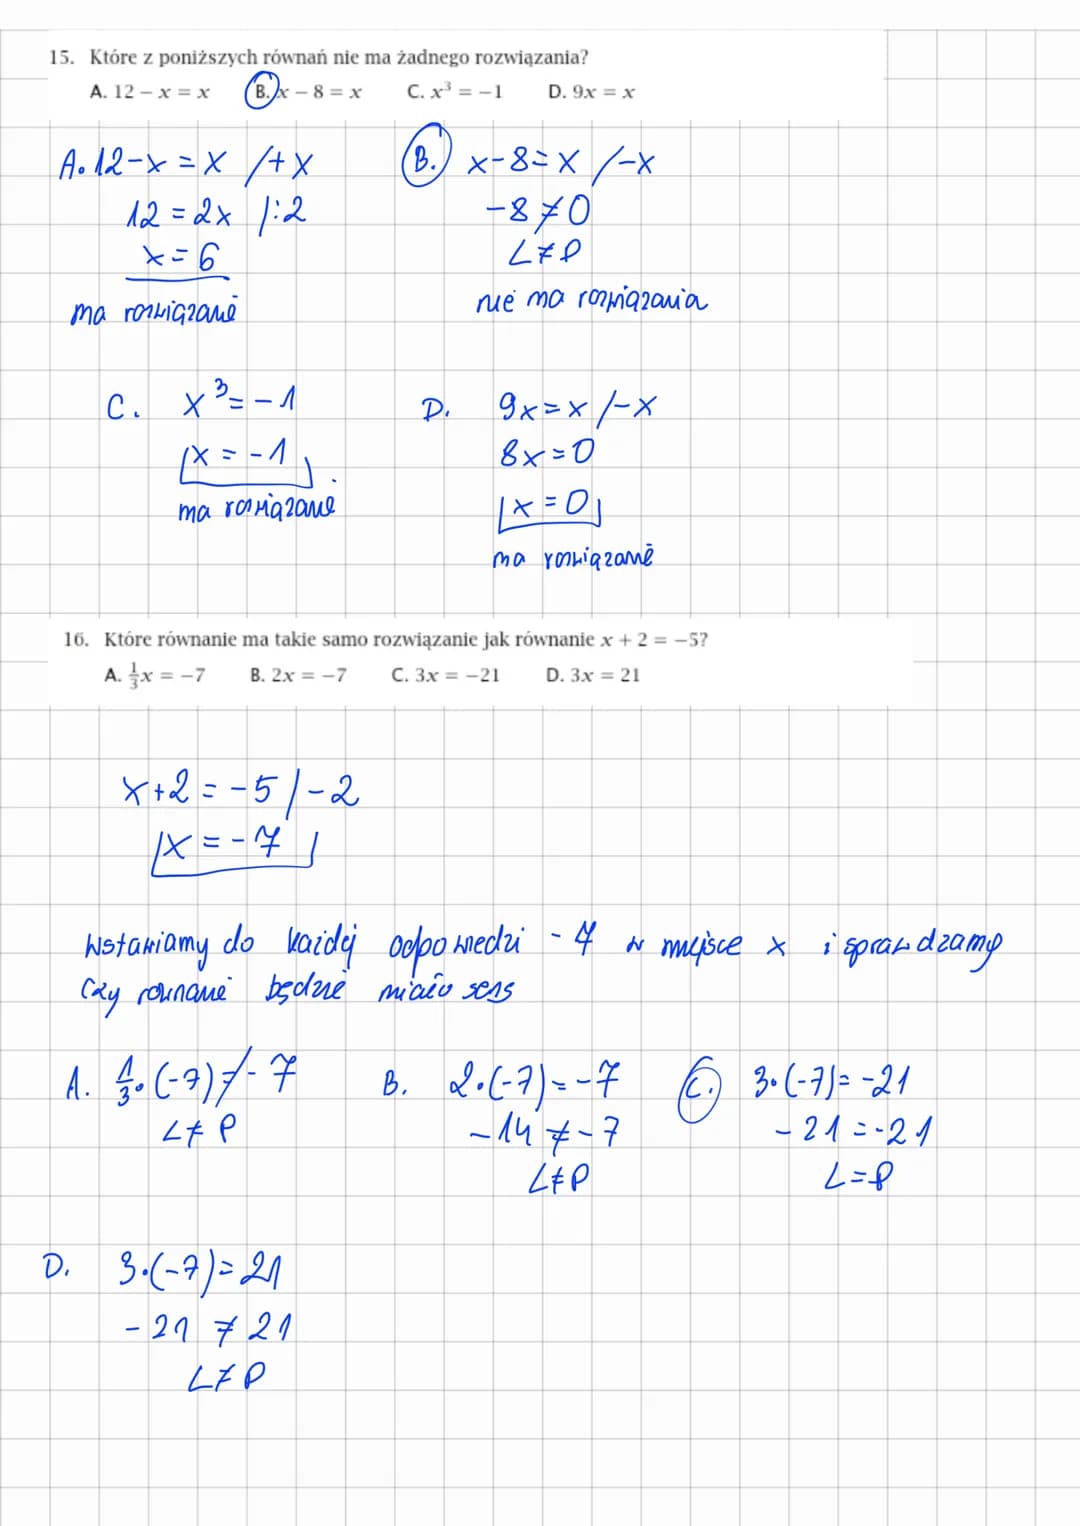 15. Które z poniższych równań nie ma żadnego rozwiązania?
A. 12 − x = x B. x − 8 = x C. x³ = −1 D. 9x = x
A. 12-x = x /+x
12 = 2x /:2
x = 6
ma rozwiązanie
B. x-8=x /-x
-8≠0
L≠P
nie ma rozwiązania
C. x³=-1
x = -1
ma rozwiązanie
D. 9x=x /-x
8x=0
x=0
ma rozwiązanie
16. Które równanie ma takie samo rozwiązanie jak równanie x + 2 = −5?
A. ⅓x = −7 B. 2x = −7 C. 3x = −21 D. 3x = 21
x+2 = -5 /-2
x = -7
Wstawiamy do każdej odpowiedzi -7 w miejsce x i sprawdzamy
Czy równanie będzie miało sens
A. ⅓·(-7)≠-7
L≠P
B. 2·(-7)=-7
-14≠-7
L≠P
C. 3·(-7)=-21
-21=-21
L=P
D. 3·(-7)=21
-21≠21
L≠P